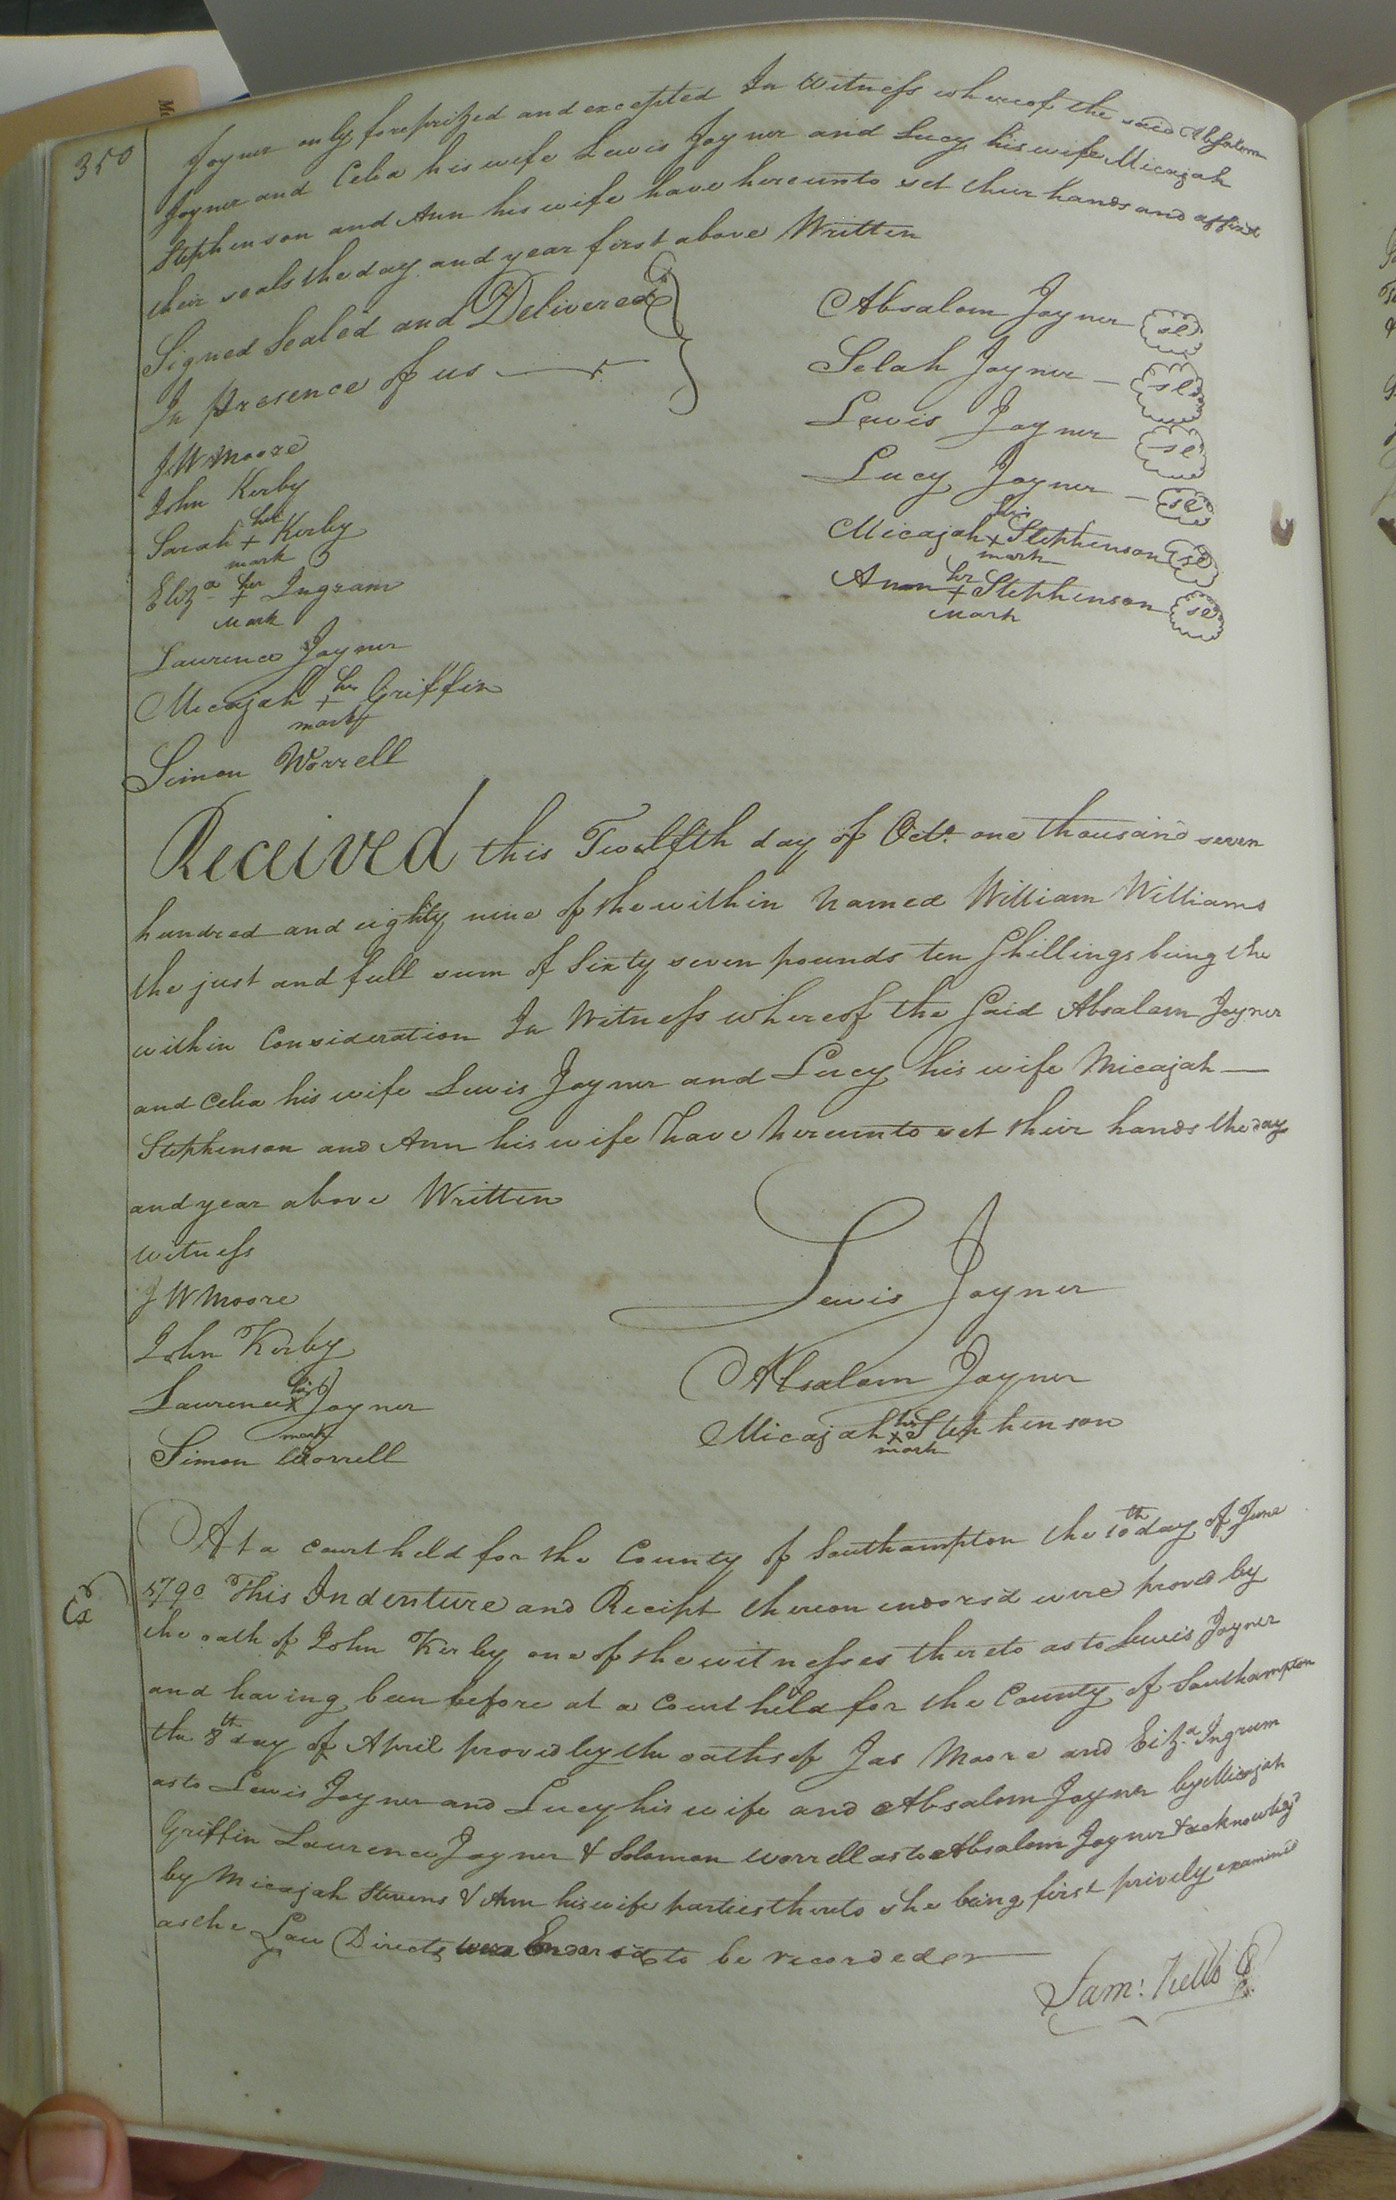 350
Joyner only foreprized and excepted In Witness whereof the said Absalom
Joyner and Celia his wife Lewis Joyner and Lucy his wife Micajah
Stephenson and Ann his wife have hereunto set their hands and affixt
their seals the day and year first above Written
Signed Sealed and Delivered
In presence of us
Absalom Joyner se
Selah Joyner se
Lewis Joyner se
Lucy Joyner se
Micajah his + mark Stephenson se
Ann her + mark Stephenson se
J W Moore
John Kerby
Sarah her + mark Kerby
Eliza her + mark Ingram
Laurence Joyner
Micajah his + mark Griffin
Simon Worrell
Received this Twelfth day of Octr. one thousand seven
hundred and eighty nine of the within Named William Williams
the just and full sum of Sixty seven pounds ten Shillings being the
within Consideration In Witness whereof the Said Absalom Joyner
and Celia his wife Lewis Joyner and Lucy his wife Micajah
Stephenson and Ann his wife have hereunto set their hands the day
and year above Written
witness
J W Moore
John Kerby
Laurence his x mark Joyner
Simon Worrell
Lewis Joyner
Absalom Joyner
Micajah his x mark Stephenson
At a Court held for the County of Southampton the 10th day of June
1790 This Indenture and Recipt thereon endorsd were proved by
the oath of John Kerby one of the witnesses thereto as to Lewis Joyner
and having been before at a Court held for the County of Southampton
the 8th day of April proved by the oaths of Jas Moore and Eliza. Ingrum
as to Lewis Joyner and Lucy his wife and Absalom Joyner by Micajah
Griffin Laurence Joyner & Solomon worrell as to Absalom Joyner & acknowledg'd
by Micajah Stevens & Ann his wife parties thereto she being first privily examined
as the Law Directs were to be recorded
Ex
Sam: Kello